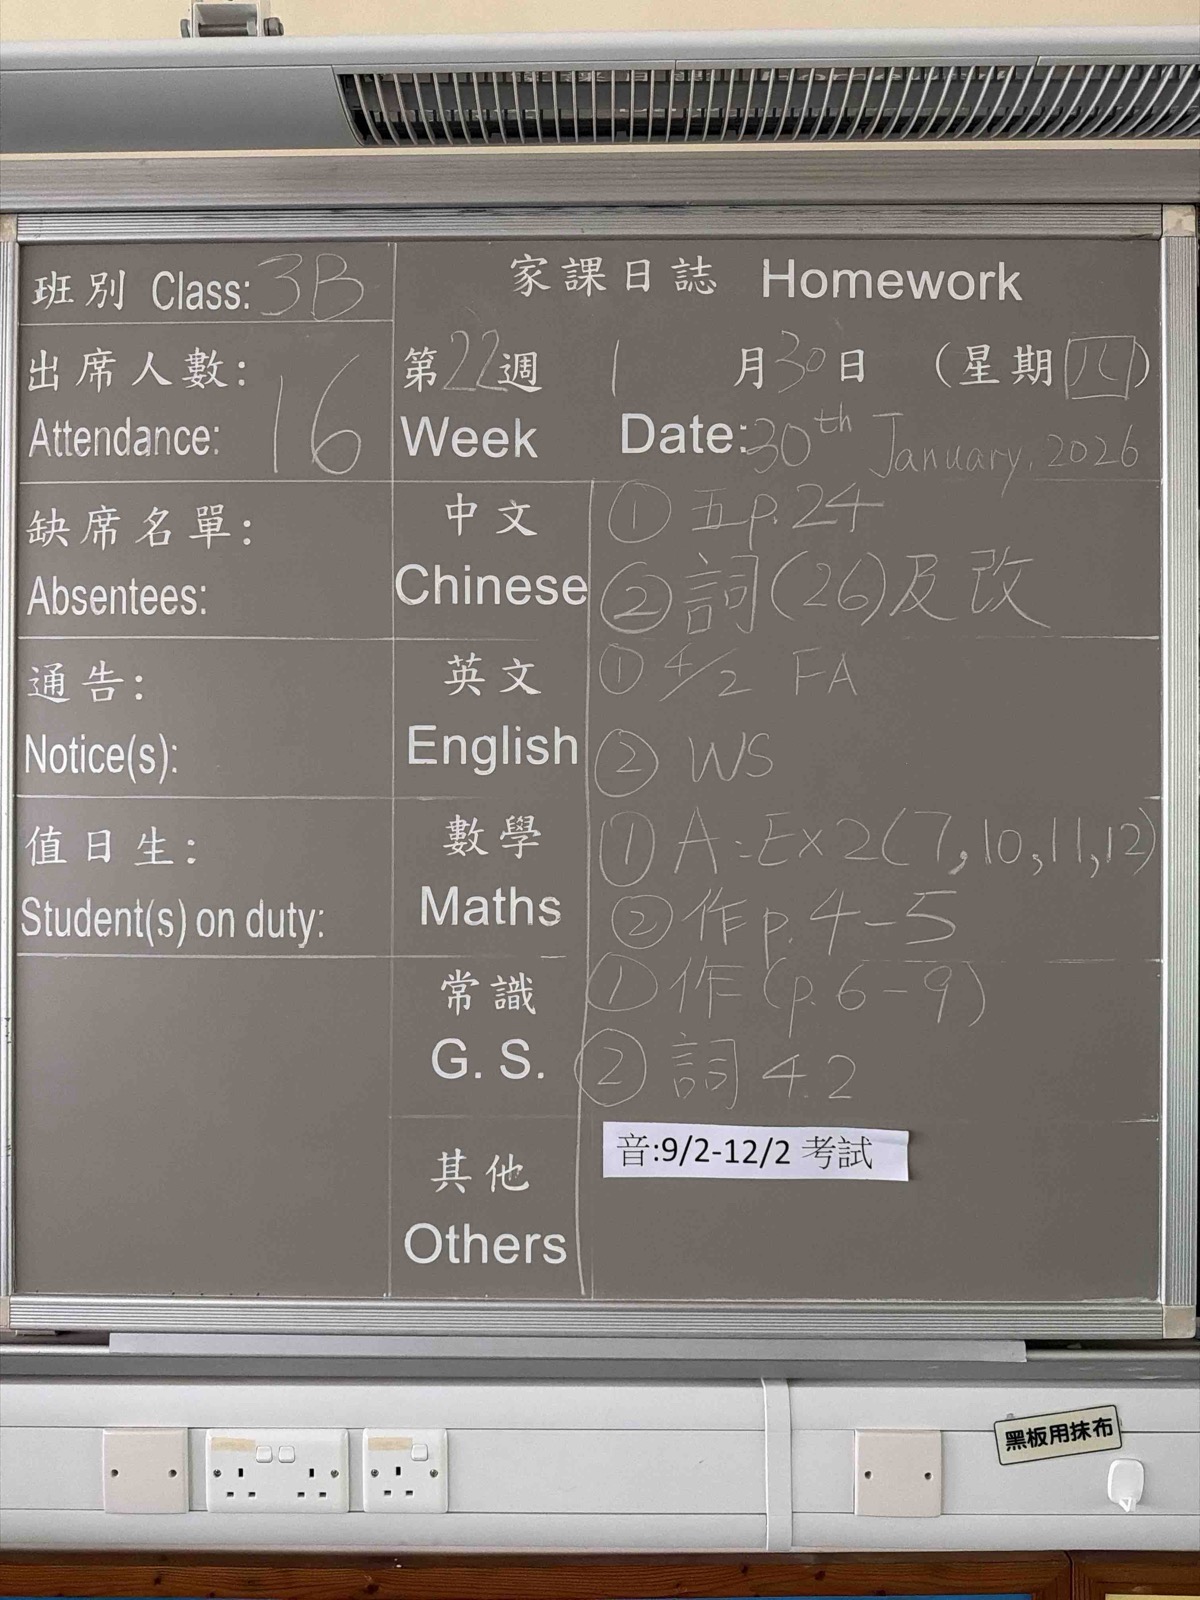 班別 Class: 3B
家課日誌 Homework
出席人數:
Attendance: 16
第22週 1月30日 (星期四)
Week Date: 30th January, 2026
缺席名單:
Absentees:
中文
Chinese
① 五 p.24
② 詞(26)及改
通告:
Notice(s):
英文
English
① 4/2 FA
② WS
值日生:
Student(s) on duty:
數學
Maths
① A: Ex 2(7,10,11,12)
② 作 p.4-5
常識
G. S.
① 作 (p.6-9)
② 詞 4.2
其他
Others
音:9/2-12/2 考試
黑板用抹布